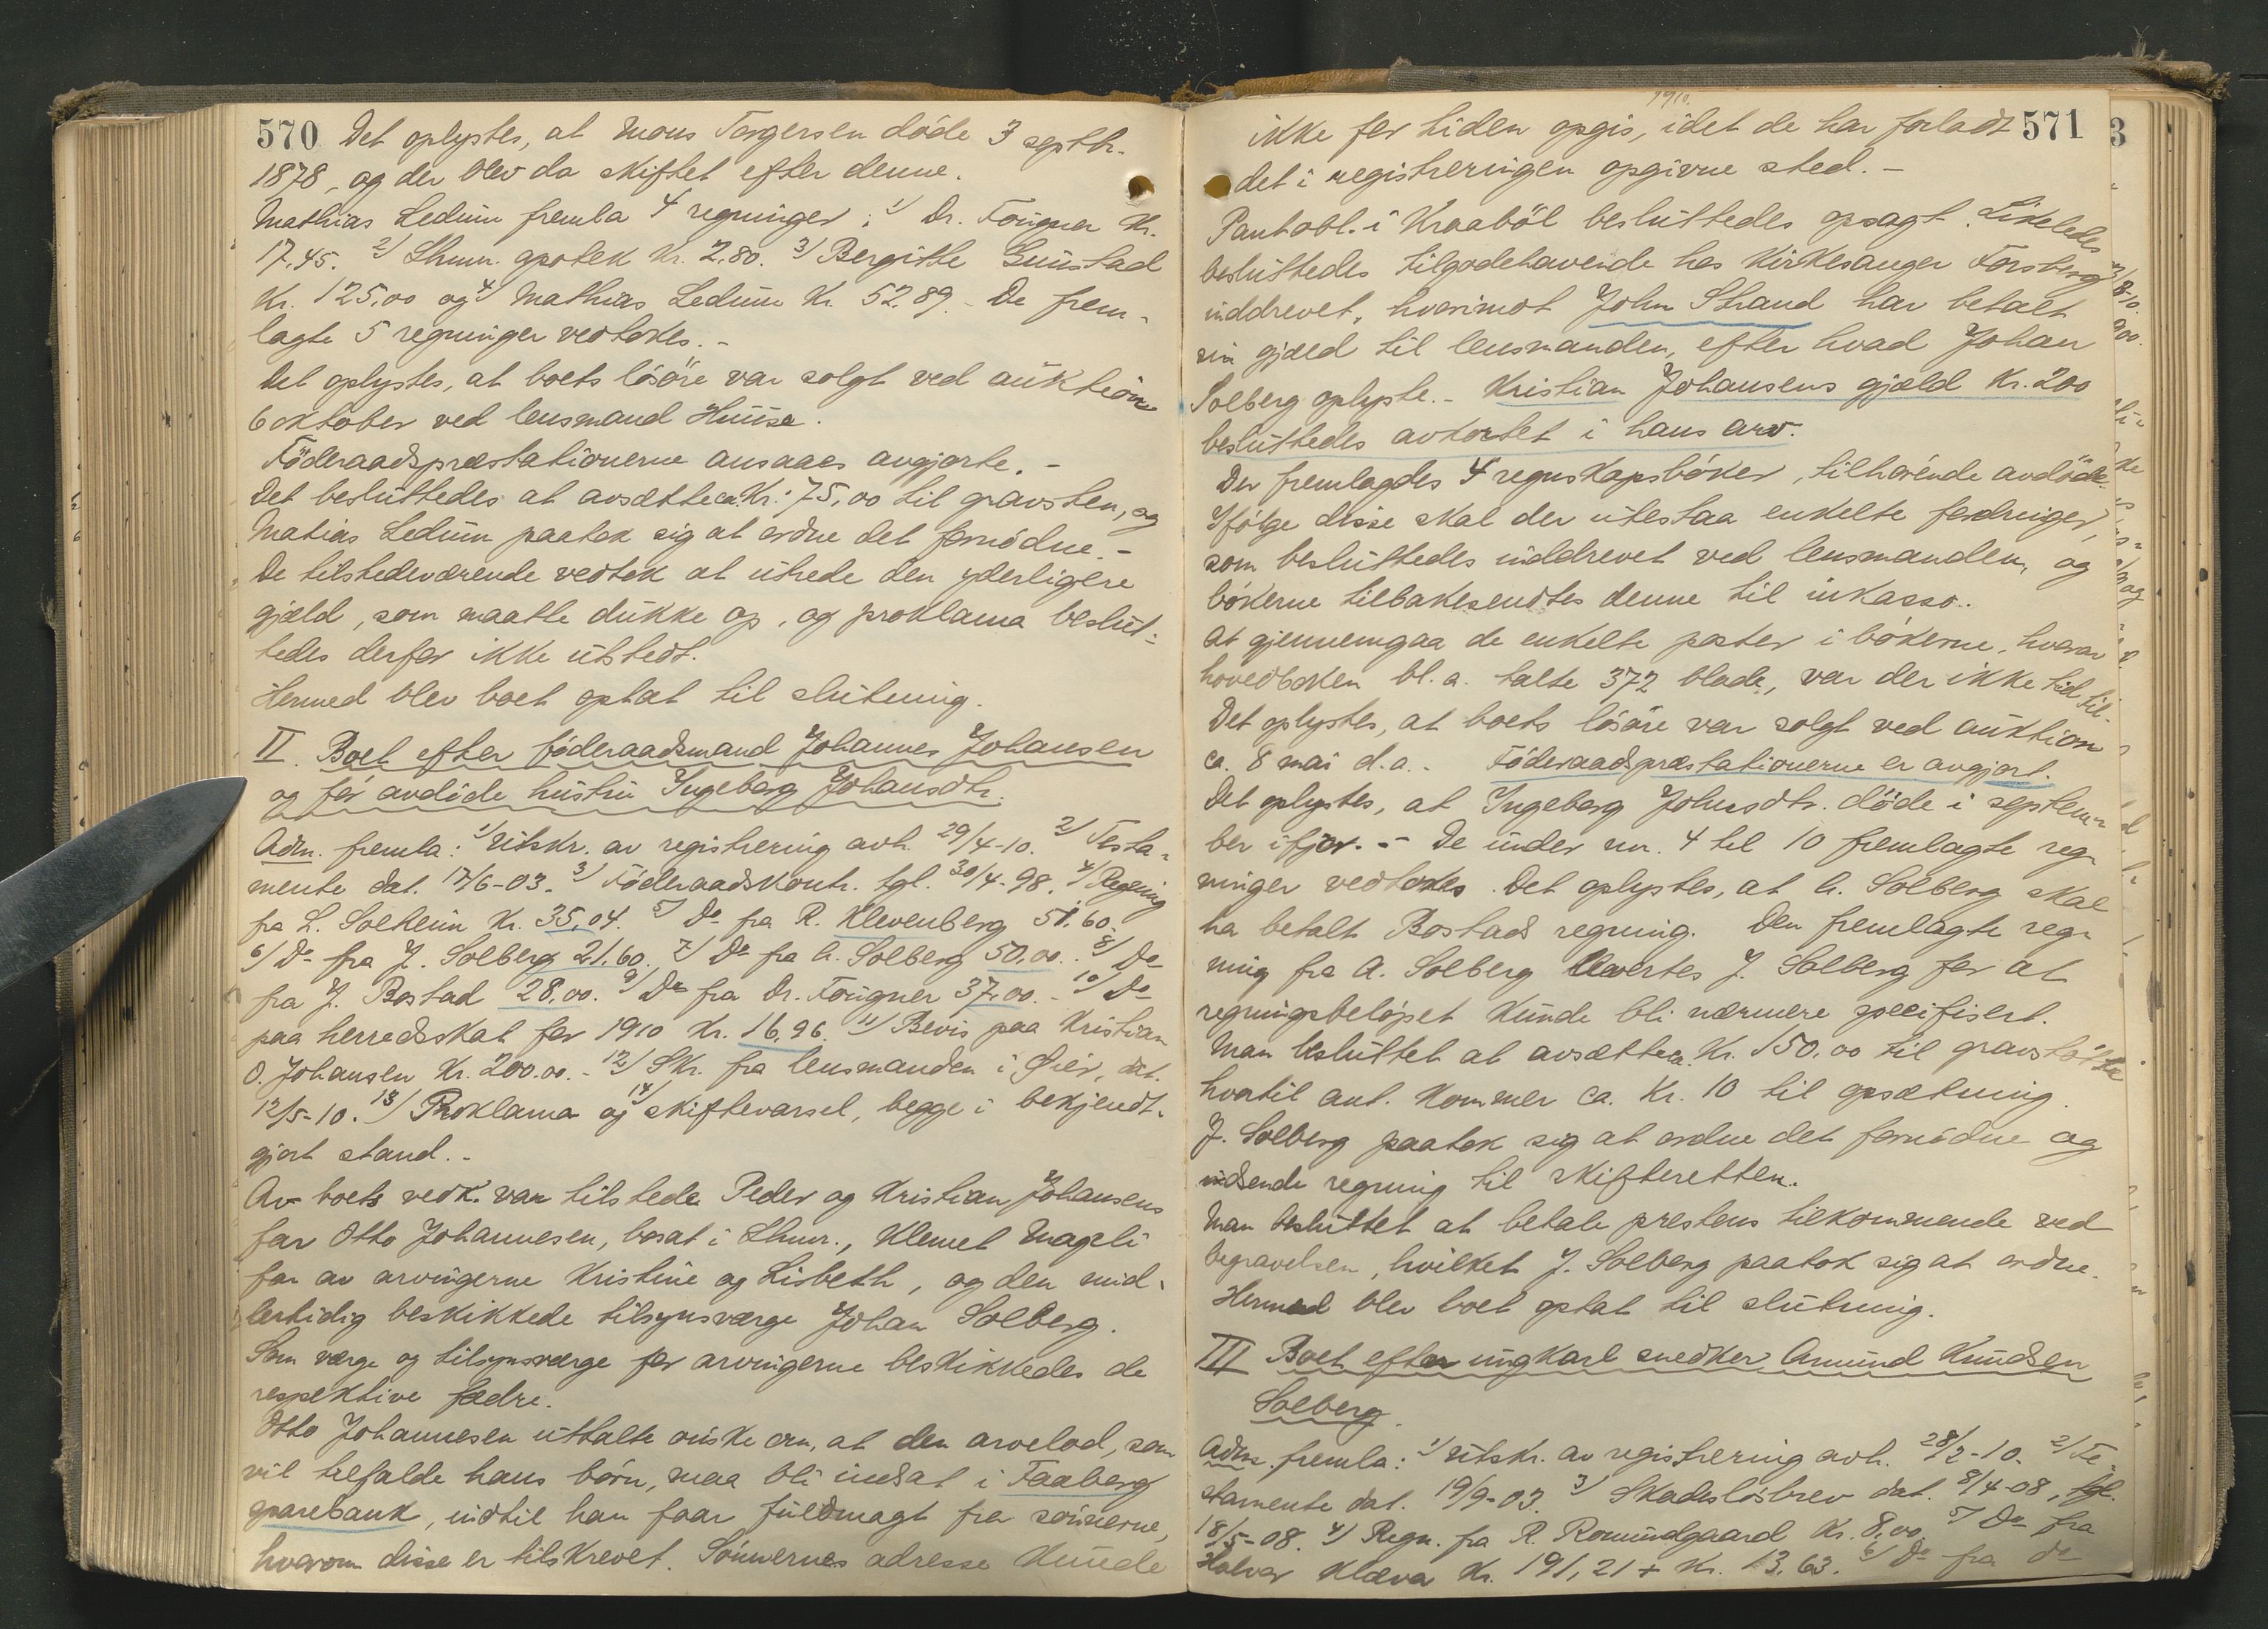 570 Det oplystes, at Mons Torgersen döde 3 septbr.
1878, og der blev da skiftet efter denne.
Mathias Ledum fremla 4 regninger: 1/ Dr. Fougner Kr.
17,45. 2/ Lhmr. apotek Kr. 2,80. 3/ Bergitte Suustad
Kr. 125,00 og 4/ Mathias Ledum Kr. 52,89. De frem-
lagte 5 regninger vedtokes. -
Det oplystes, at boets lösöre var solgt ved auktion
6 oktober ved lensmand Huuse.
Föderaadspræstationerne ansaaes avgjorte. -
Det besluttedes at avsætte ca. Kr. 75,00 til gravsten, og
Matias Ledum paatok sig at ordne det fornödne. -
De tilstedeværende vedtok at utrede den yderligere
gjæld, som maatte dukke op, og proklama beslut-
tedes derfor ikke utstedt.
Hermed blev boet optat til slutning.
II. Boet efter föderaadsmand Johannes Johansen
og för avdöde hustru Ingeborg Johansdtr.
Adm. fremla: 1/ Utskr. av registrering avh. 29/4-10. 2/ Testa-
mente dat. 17/6-03. 3/ Föderaadskontr. tgl. 30/4-98. 4/ Regning
fra L. Solheim Kr. 35,04. 5/ Do fra R. Klevenberg 51,60.
6/ Do fra J. Solberg 21,60. 7/ Do fra A. Solberg 50,00. 8/ Do
fra J. Bostad 28,00. 9/ Do fra Dr. Fougner 37,00. - 10/ Do
paa herredsskat for 1910 Kr. 16,96. 11/ Bevis paa Kristian
O. Johansen Kr. 200.00. - 12/ Skr. fra lensmanden i Øier, dat.
12/5-10. 13/ Proklama og 14/ skiftevarsel, begge i bekjendt-
gjort stand. -
Av boets vedk. var tilstede Peder og Kristian Johansens
far Otto Johannesen, bosat i Lhmr., Klemet Mageli
far av arvingerne Kristine og Lisbeth, og den mid-
lertidig beskikkede tilsynsværge Johan Solberg.
Som værge og tilsynsværge for arvingerne beskikkedes de
respektive fædre.
Otto Johannesen uttalte önske om, at den arvelod, som
vil tilfalde hans börn, maa bli indsat i Faaberg
sparebank, indtil han faar fuldmagt fra sönnerne,
hvorom disse er tilskrevet. Sönnernes adresse kunde
1910.
ikke for tiden opgis, idet de har forladt 571
det i registreringen opgivne sted. -
Pantobl. i Kraaböl besluttedes opsagt. Likeledes
besluttedes tilgodehavende hos kirkesanger Forsberg
inddrevet, hvorimot John Strand har betalt
sin gjæld til lensmanden, efter hvad Johan
Solberg oplyste. - Kristian Johansens gjæld Kr. 200
besluttedes avkortet i hans arv.
Der fremlagdes 4 regnskapsböker, tilhörende avdöde.
Ifölge disse skal der utestaa enkelte fordringer,
som besluttedes inddrevet ved lensmanden, og
bökerne tilbakesendtes denne til inkasso.
At gjennemgaa de enkelte poster i bökerne, hvorav
hovedboken bl.a. talte 372 blade, var der ikke tid til.
Det oplystes, at boets lösöre var solgt ved auktion
ca. 8 mai d.a. - Föderaadspræstationerne er avgjort.
Det oplystes, at Ingeborg Johnsdtr. döde i septem-
ber ifjor. - De under nr. 4 til 10 fremlagte reg-
ninger vedtokes. Det oplystes, at A. Solberg skal
ha betalt Bostads regning. Den fremlagte reg-
ning fra A. Solberg levertes J. Solberg for at
regningsbelöpet kunde bli nærmere specifisert.
Man besluttet at avsætte ca. Kr. 150,00 til gravstötte
hvortil ant. kommer ca. Kr. 10 til opsætning.
J. Solberg paatok sig at ordne det fornödne og
indsende regning til skifteretten.
Man besluttet at betale prestens tilkommende ved
begravelsen, hvilket J. Solberg paatok sig at ordne.
Hermed blev boet optat til slutning.
III Boet efter ungkarl snedker Amund Knudsen
Solberg.
Adm. fremla: 1/ Utskr. av registrering avh. 28/2-10. 2/ Te-
stamente dat. 19/9-03. 3/ Skadeslösbrev dat. 8/4-08, tgl.
18/5-08. 4/ Regn. fra R. Romundgaard Kr. 8,00. 5/ Do fra
Halvor Klæva Kr. 191,21 + Kr. 13,63. 6/ Do fra do
3